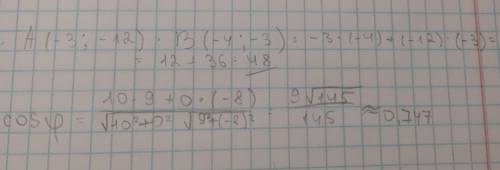 A (-3; -12) · B (-4; -3) = -3 · (-4) + (-12) · (-3) =
= 12 + 36 = 48
cos φ = (10 · 9 + 0 · (-8)) / (√10²+0² √9²+(-8)²) = 9√145 / 145 ≈ 0,747